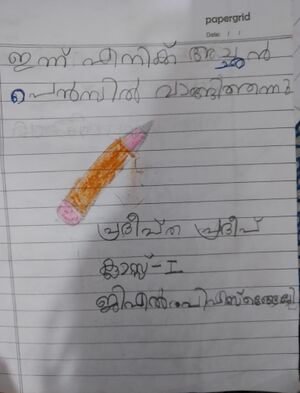 papergrid
Date: / /
ഇന്ന് എനിക്ക് അച്ഛൻ
പെൻസിൽ വാങ്ങിത്തന്നു
പ്രദീപ്ത പ്രദീപ്
ക്ലാസ്സ്-I